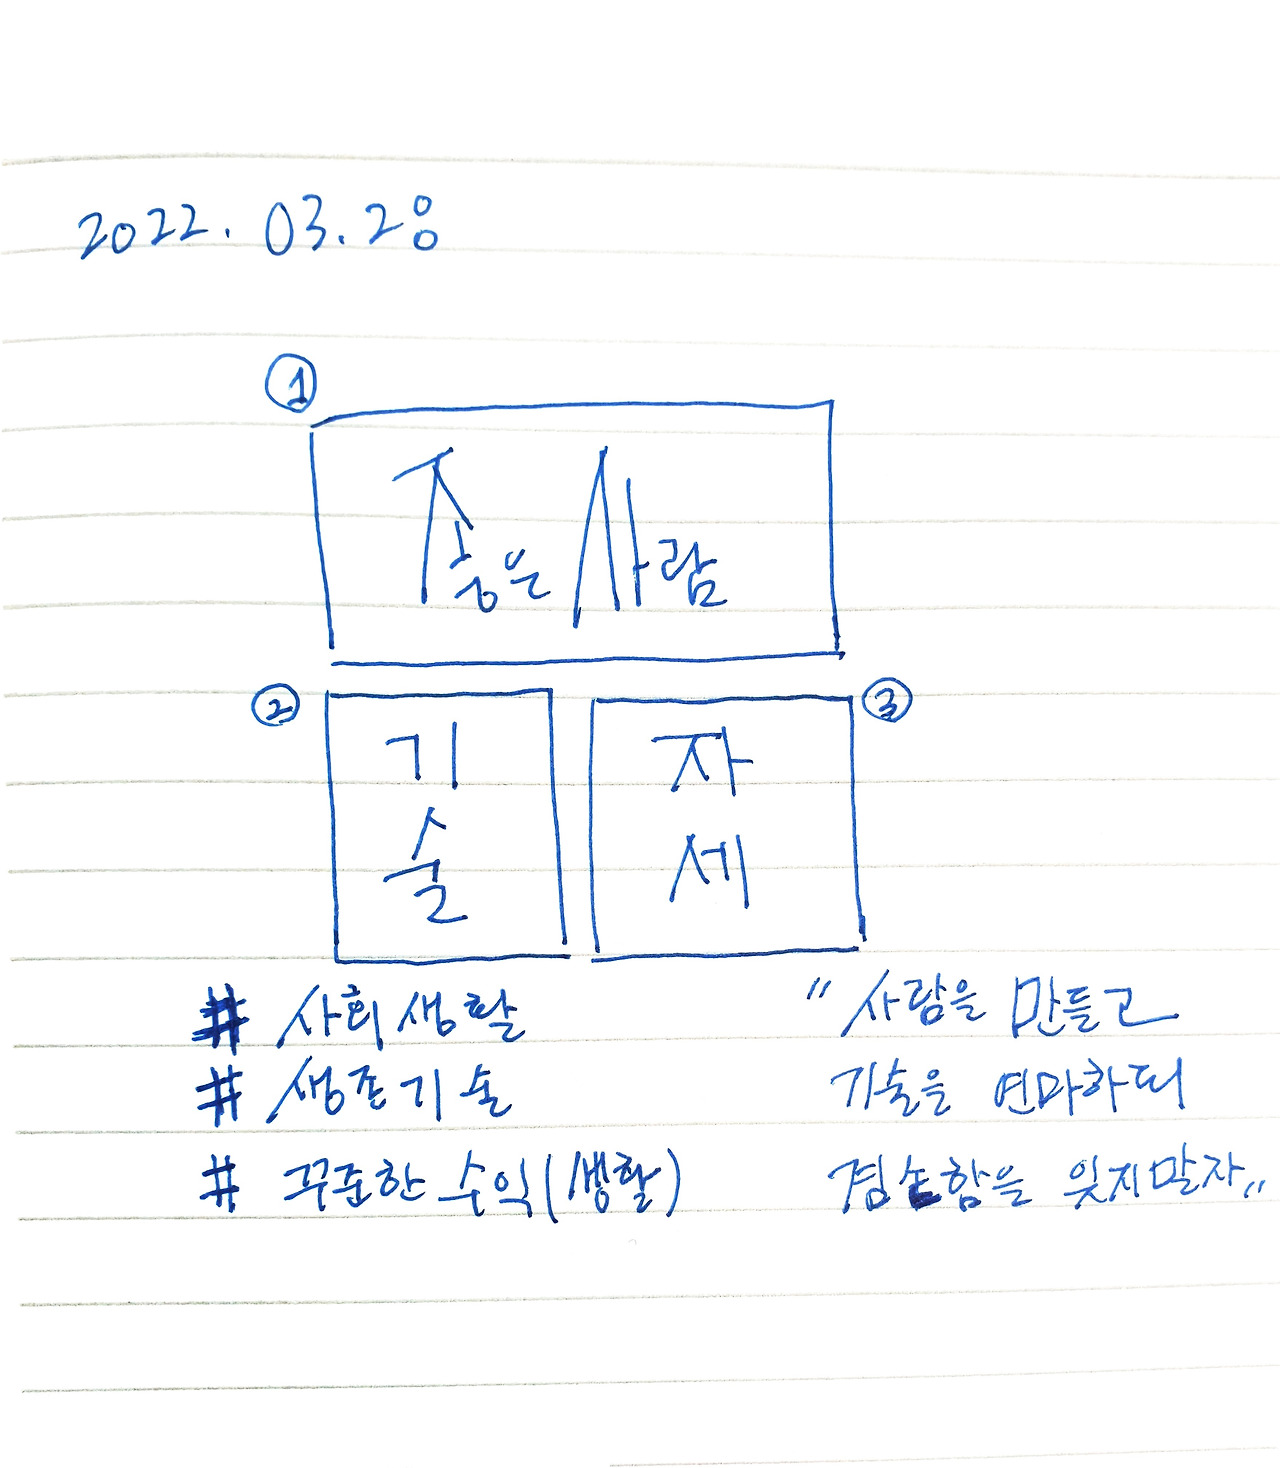 2022. 03. 28
①
좋은 사람
② ③
기 자
술 세
# 사회생활
# 생존기술
# 꾸준한 수익(생활)
"사람을 만들고
기술을 연마하되
겸손함을 잊지말자"